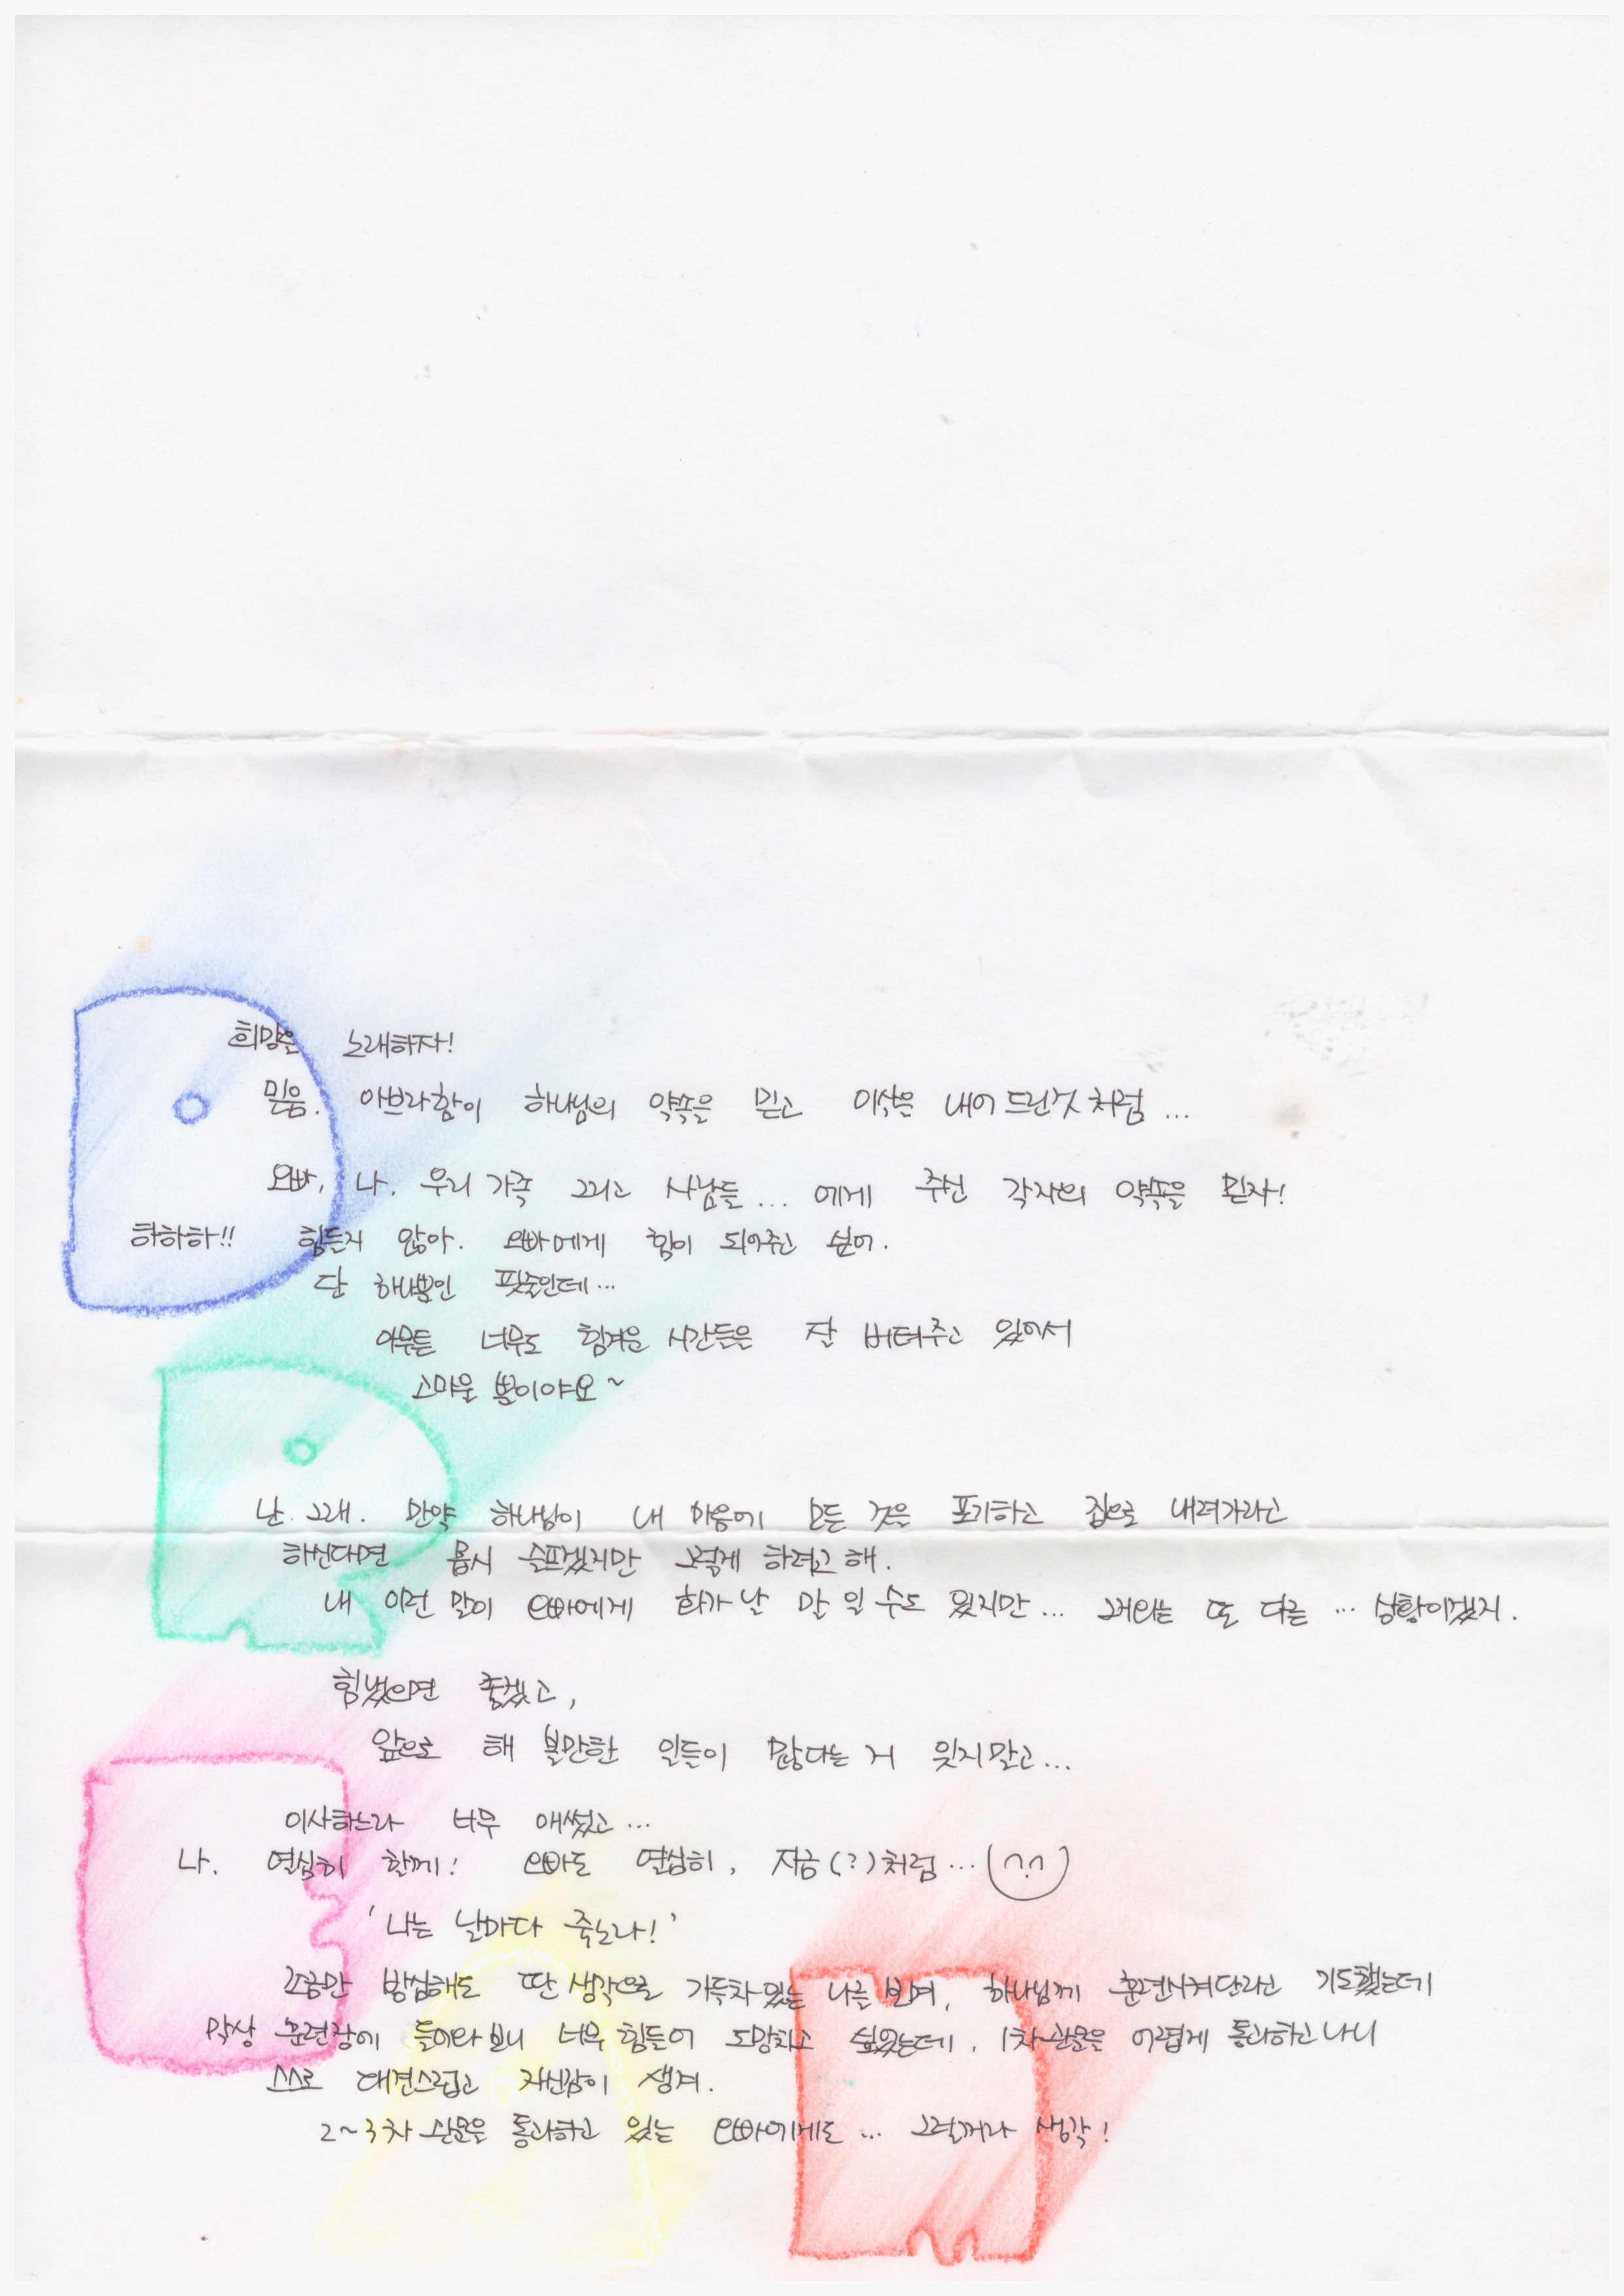 희망을 노래하자!
믿음. 아브라함이 하나님의 약속을 믿고 이삭을 내어 드린것 처럼...
오빠, 나. 우리 가족 그리고 사람들... 에게 주신 각자의 약속을 믿자!
하하하!! 힘들지 않아. 오빠에게 힘이 되어주고 싶어.
단 하나뿐인 핏줄인데...
아무튼 너무도 힘겨운 시간들을 잘 버텨주고 있어서
고마울 뿐이야요~
난. 그래. 만약 하나님이 내 마음에 모든 것을 포기하고 집으로 내려가라고
하신다면 몹시 슬프겠지만 그렇게 하려고 해.
내 이런 말이 오빠에게 화가 날 말 일 수도 있지만... 그거와는 또 다른 ... 상황이겠지.
힘냈으면 좋겠고,
앞으로 해 볼만한 일들이 많다는 거 잊지말고...
이사하느라 너무 애썼고...
나. 열심히 할께! 오빠도 열심히, 지금(?)처럼...
'나는 날마다 죽노라!'
조금만 방심해도 딴 생각으로 가득차 있는 나를 보며, 하나님께 훈련시켜달라고 기도했는데
막상 훈련장에 들어와 보니 너무 힘들어 도망치고 싶었는데, 1차 관문을 어렵게 통과하고 나니
스스로 대견스럽고 자신감이 생겨.
2~3차 관문을 통과하고 있는 오빠에게도 ... 그럴꺼라 생각!